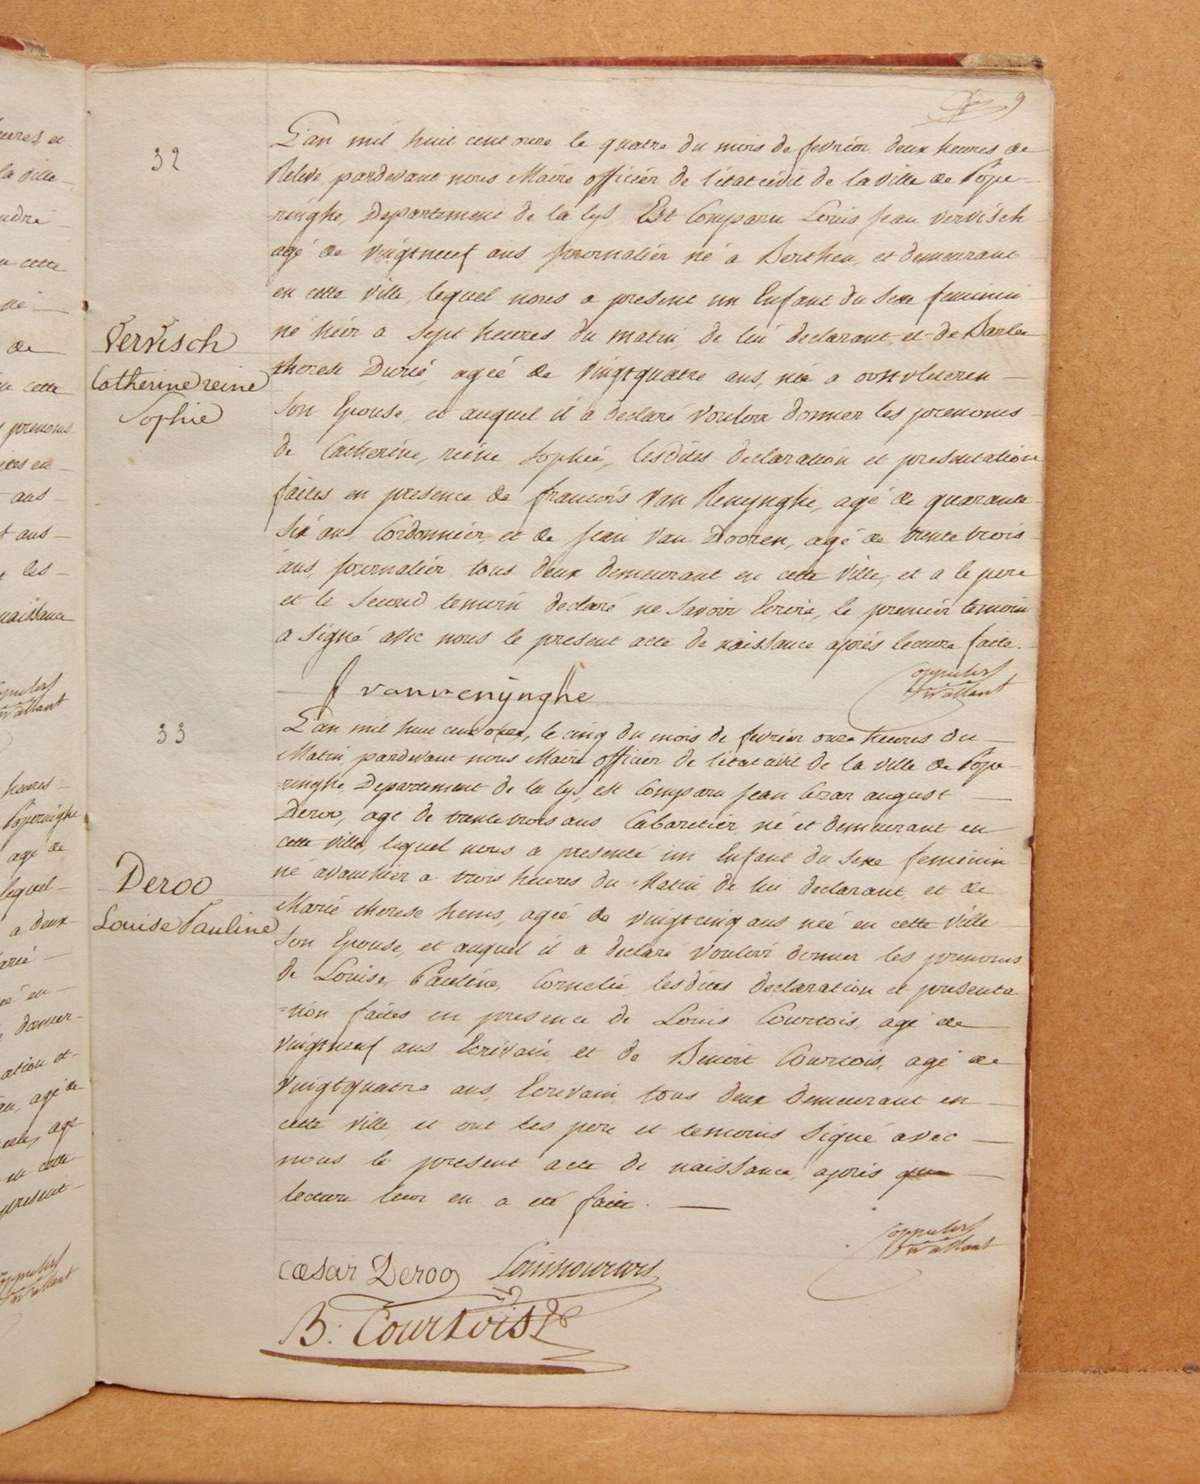 9
32
L'an mil huit cent onze le quatre du mois de fevrier deux heures de
Relevé pardevant nous Maire officier de l'etat civil de la ville de Pope-
ringhe, Departement de la Lys, Est Comparu Louis Jean Vervisch
agé de vingtneuf ans journalier né a Berthen, et demeurant
en cette ville, lequel nous a presenté un Enfant du Sexe feminin
né hier a Sept heures du matin, de lui declarant, et de Barbe
therese Durié, agée de vingtquatre ans, née a
Son Epouse, et auquel il a declaré vouloir donner les prenoms
de Catherine, reine Sophie, lesdites declaration et presentation
faites en presence de francois Van Renynghe, agé de quarante
Six ans Cordonnier et de Jean Van Dooren, agé de trente trois
ans, journalier, tous deux demeurant en cette ville, et a le pere
et le Second temoin declaré ne Savoir Ecrire, le premier temoin
a Signé avec nous le present acte de naissance après lecture faite.
Vervisch
Catherine reine
Sophie
f vanrenijnghe
33
L'an mil huit cent onze, le cinq du mois de fevrier onze heures du
Matin, pardevant nous Maire officier de l'etat civil de la ville de Pope-
ringhe, Departement de la Lys, est Comparu Jean Cezar august
Deroo, agé de trente trois ans Cabaretier, né et demeurant en
cette ville, lequel nous a presenté un Enfant du Sexe feminin
né avanthier a trois heures du Matin de lui declarant, et de
Marie therese agée de vingtcinq ans née en cette ville
Son Epouse, et auquel il a declaré vouloir donner les prenoms
de Louise, Pauline, Cornelie, lesdites declaration et presenta
-tion faites en presence de Louis Courtois, agé de
vingtneuf ans Ecrivain, et de Benoit Courtois, agé de
vingtquatre ans, Ecrivain, tous deux demeurant en
cette ville, et ont les pere et temoins Signé avec
nous le present acte de naissance, après que
lecture leur en a eté faite.
Deroo
Louise Pauline
cæsar Deroo
B: Courtois